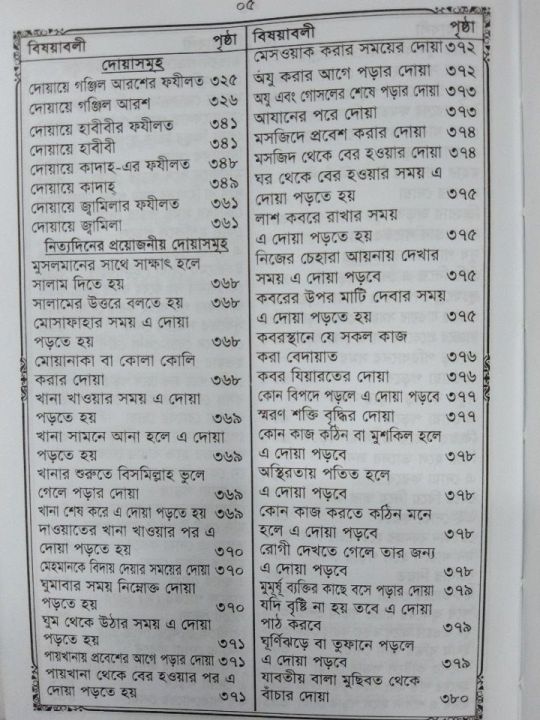 ০৫
বিষয়াবলী পৃষ্ঠা
দোয়াসমূহ
দোয়ায়ে গঞ্জিল আরশের ফযীলত ৩২৫
দোয়ায়ে গঞ্জিল আরশ ৩২৬
দোয়ায়ে হাবীবীর ফযীলত ৩৪১
দোয়ায়ে হাবীবী ৩৪১
দোয়ায়ে কাদাহ্-এর ফযীলত ৩৪৮
দোয়ায়ে কাদাহ্ ৩৪৯
দোয়ায়ে জ্বামিলার ফযীলত ৩৬১
দোয়ায়ে জ্বামিলা ৩৬১
নিত্যদিনের প্রয়োজনীয় দোয়াসমূহ
মুসলমানের সাথে সাক্ষাৎ হলে
সালাম দিতে হয় ৩৬৮
সালামের উত্তরে বলতে হয় ৩৬৮
মোসাফাহার সময় এ দোয়া
পড়তে হয় ৩৬৮
মোয়ানাকা বা কোলা কোলি
করার দোয়া ৩৬৮
খানা খাওয়ার সময় এ দোয়া
পড়তে হয় ৩৬৯
খানা সামনে আনা হলে এ দোয়া
পড়তে হয় ৩৬৯
খানার শুরুতে বিসমিল্লাহ ভুলে
গেলে পড়ার দোয়া ৩৬৯
খানা শেষ করে এ দোয়া পড়তে হয় ৩৬৯
দাওয়াতের খানা খাওয়ার পর এ
দোয়া পড়তে হয় ৩৭০
মেহমানকে বিদায় দেয়ার সময়ের দোয়া ৩৭০
ঘুমাবার সময় নিম্নোক্ত দোয়া
পড়তে হয় ৩৭০
ঘুম থেকে উঠার সময় এ দোয়া
পড়তে হয় ৩৭১
পায়খানায় প্রবেশের আগে পড়ার দোয়া ৩৭১
পায়খানা থেকে বের হওয়ার পর এ
দোয়া পড়তে হয় ৩৭১
বিষয়াবলী পৃষ্ঠা
মেসওয়াক করার সময়ের দোয়া ৩৭২
অযু করার আগে পড়ার দোয়া ৩৭২
অযু এবং গোসলের শেষে পড়ার দোয়া ৩৭৩
আযানের পরে দোয়া ৩৭৩
মসজিদে প্রবেশ করার দোয়া ৩৭৪
মসজিদ থেকে বের হওয়ার দোয়া ৩৭৪
ঘর থেকে বের হওয়ার সময় এ
দোয়া পড়তে হয় ৩৭৫
লাশ কবরে রাখার সময়
এ দোয়া পড়তে হয় ৩৭৫
নিজের চেহারা আয়নায় দেখার
সময় এ দোয়া পড়বে ৩৭৫
কবরের উপর মাটি দেবার সময়
এ দোয়া পড়তে হয় ৩৭৫
কবরস্থানে যে সকল কাজ
করা বেদায়াত ৩৭৬
কবর যিয়ারতের দোয়া ৩৭৬
কোন বিপদে পড়লে এ দোয়া পড়বে ৩৭৭
স্মরণ শক্তি বৃদ্ধির দোয়া ৩৭৭
কোন কাজ কঠিন বা মুশকিল হলে
এ দোয়া পড়বে ৩৭৮
অস্থিরতায় পতিত হলে
এ দোয়া পড়বে ৩৭৮
কোন কাজ করতে কঠিন মনে
হলে এ দোয়া পড়বে ৩৭৮
রোগী দেখতে গেলে তার জন্য
এ দোয়া পড়বে ৩৭৮
মুমূর্ষূ ব্যক্তির কাছে বসে পড়ার দোয়া ৩৭৯
যদি বৃষ্টি না হয় তবে এ দোয়া
পাঠ করবে ৩৭৯
ঘূর্ণিঝড়ে বা তুফানে পড়লে
এ দোয়া পড়বে ৩৭৯
যাবতীয় বালা মুছিবত থেকে
বাঁচার দোয়া ৩৮০